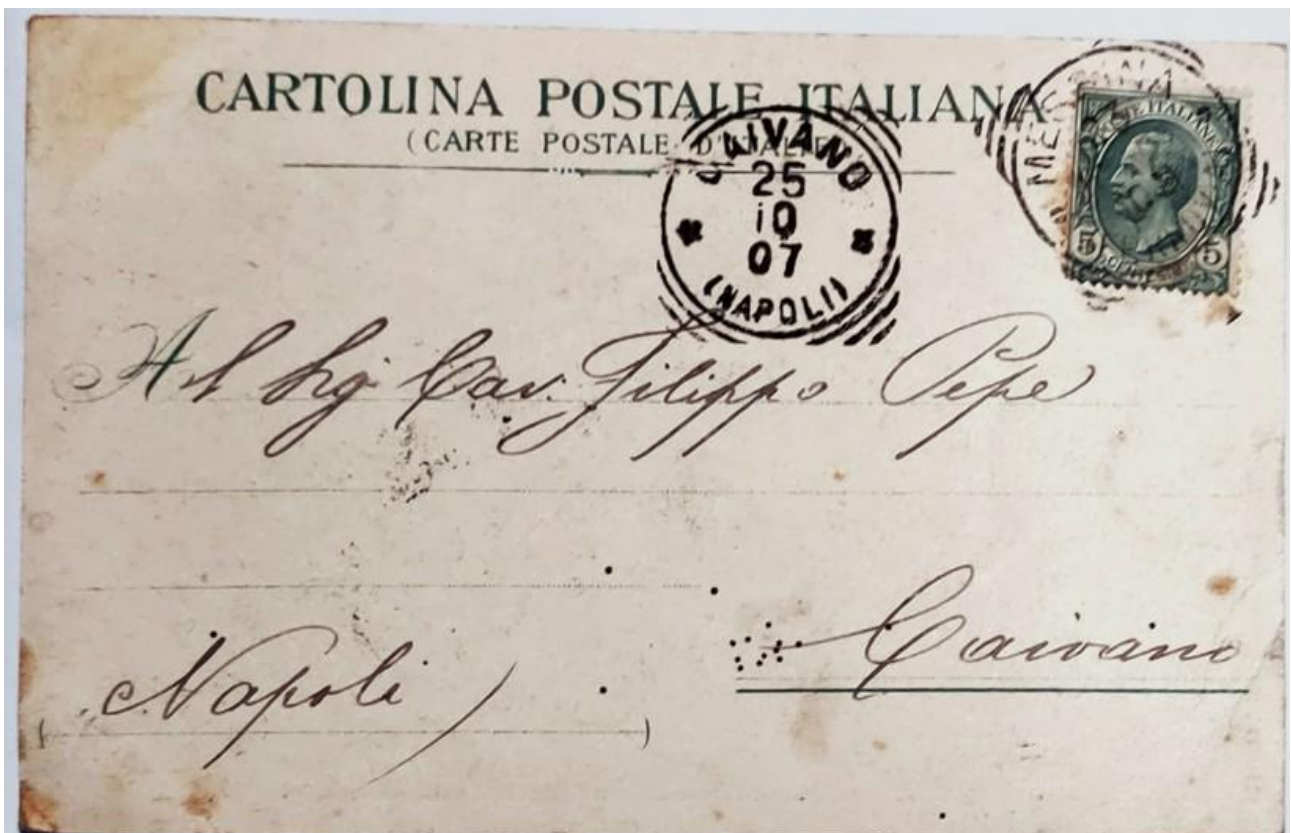 CARTOLINA POSTALE ITALIANA
(CARTE POSTALE D'ITALIE)
CAIVANO
25
10
07
(NAPOLI)
POSTE ITALIANE
5 5
Al Sig Cav. Filippo Pepe
Caivano
(Napoli)